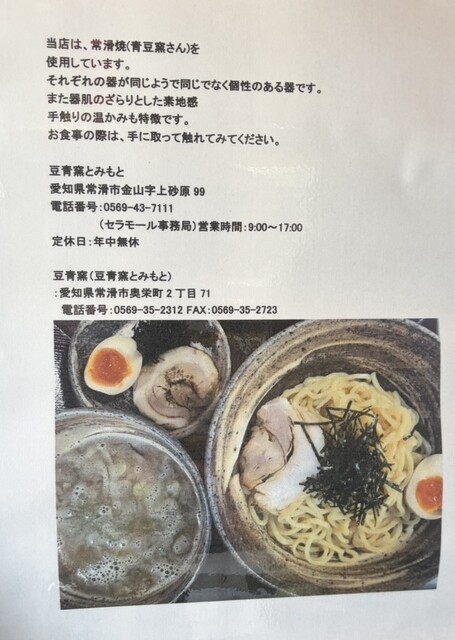 当店は、常滑焼(青豆窯さん)を
使用しています。
それぞれの器が同じようで同じでなく個性のある器です。
また器肌のざらりとした素地感
手触りの温かみも特徴です。
お食事の際は、手に取って触れてみてください。
豆青窯とみもと
愛知県常滑市金山字上砂原 99
電話番号：0569-43-7111
（セラモール事務局）営業時間：9:00～17:00
定休日：年中無休
豆青窯（豆青窯とみもと）
：愛知県常滑市奥栄町 2 丁目 71
電話番号：0569-35-2312 FAX：0569-35-2723